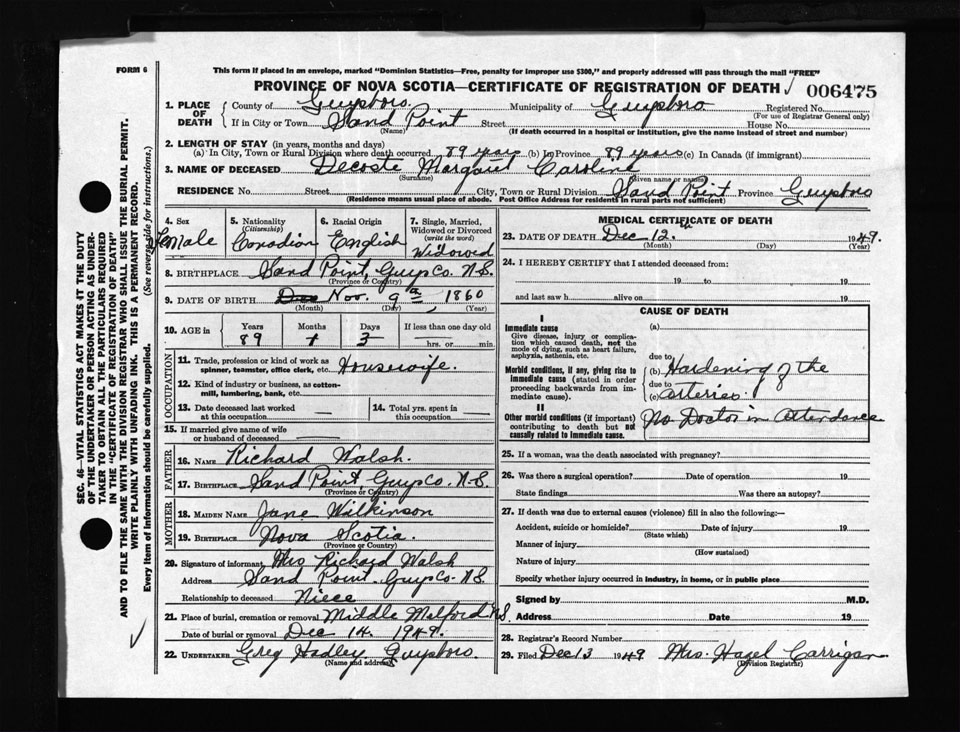 FORM 6
This form if placed in an envelope, marked "Dominion Statistics—Free, penalty for improper use $300," and properly addressed will pass through the mail "FREE"
PROVINCE OF NOVA SCOTIA—CERTIFICATE OF REGISTRATION OF DEATH
006475
1. PLACE OF DEATH
County of Guysboro. Municipality of Guysboro Registered No.
(For use of Registrar General only)
If in City or Town Sand Point Street House No.
(Name) (If death occurred in a hospital or institution, give the name instead of street and number)
2. LENGTH OF STAY (in years, months and days)
(a) In City, Town or Rural Division where death occurred 89 years (b) In Province 89 years (c) In Canada (if immigrant)
3. NAME OF DECEASED Decoste Margaret Caroline
(Surname) (Given name or names)
RESIDENCE No. Street City, Town or Rural Division Sand Point Province Guysboro
(Residence means usual place of abode. Post Office Address for residents in rural parts not sufficient)
4. Sex
Female
5. Nationality
(Citizenship)
Canadian
6. Racial Origin
English
7. Single, Married,
Widowed or Divorced
(write the word)
Widowed
8. BIRTHPLACE Sand Point, Guys Co. N.S.
(Province or Country)
9. DATE OF BIRTH Dec Nov. 9th 1860
(Month) (Day) (Year)
10. AGE in
Years Months Days If less than one day old
89 1 3 hrs. or min.
OCCUPATION
11. Trade, profession or kind of work as
spinner, teamster, office clerk, etc. Housewife.
12. Kind of industry or business, as cotton-
mill, lumbering, bank, etc.
13. Date deceased last worked
at this occupation
14. Total yrs. spent in
this occupation
15. If married give name of wife
or husband of deceased
FATHER
16. NAME Richard Walsh.
17. BIRTHPLACE Sand Point, Guys Co. N.S.
(Province or Country)
MOTHER
18. MAIDEN NAME Jane Wilkinson
19. BIRTHPLACE Nova Scotia.
(Province or Country)
20. Signature of informant Mrs Richard Walsh
Address Sand Point. Guys Co. N.S.
Relationship to deceased Niece
21. Place of burial, cremation or removal Middle Melford N.S.
Date of burial or removal Dec 14. 1949.
22. UNDERTAKER Greg Hadley Guysboro.
(Name and address)
MEDICAL CERTIFICATE OF DEATH
23. DATE OF DEATH Dec 12th 1949.
(Month) (Day) (Year)
24. I HEREBY CERTIFY that I attended deceased from:
19 to 19
and last saw h alive on 19
CAUSE OF DEATH
I
Immediate cause (a)
Give disease, injury or complica-
tion which caused death, not the
mode of dying, such as heart failure,
asphyxia, asthenia, etc.
due to
Morbid conditions, if any, giving rise to
immediate cause (stated in order
proceeding backwards from im-
mediate cause).
(b) Hardening of the
due to
(c) arteries.
II
Other morbid conditions (if important)
contributing to death but not
causally related to immediate cause.
No Doctor in attendance
25. If a woman, was the death associated with pregnancy?
26. Was there a surgical operation? Date of operation 19
State findings Was there an autopsy?
27. If death was due to external causes (violence) fill in also the following:—
Accident, suicide or homicide? Date of injury 19
(State which)
Manner of injury
(How sustained)
Nature of injury
Specify whether injury occurred in industry, in home, or in public place
Signed by M.D.
Address Date 19
28. Registrar's Record Number
29. Filed Dec 13 1949 Mrs. Hazel Carrigan
(Division Registrar)
SEC. 46—VITAL STATISTICS ACT MAKES IT THE DUTY
OF THE UNDERTAKER OR PERSON ACTING AS UNDER-
TAKER TO OBTAIN ALL THE PARTICULARS REQUIRED
IN THE "CERTIFICATE OF REGISTRATION OF DEATH"
AND TO FILE THE SAME WITH THE DIVISION REGISTRAR WHO SHALL ISSUE THE BURIAL PERMIT.
WRITE PLAINLY WITH UNFADING INK. THIS IS A PERMANENT RECORD.
Every item of Information should be carefully supplied. (See reverse side for instructions.)